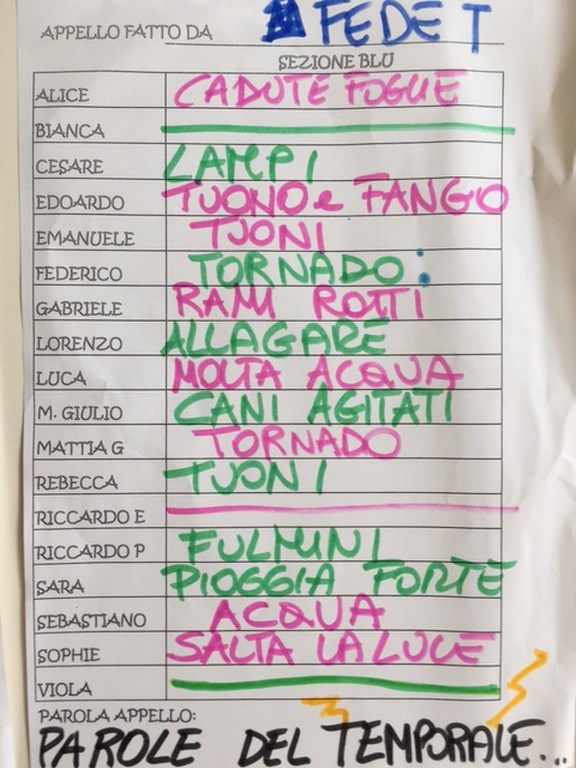 APPELLO FATTO DA FEDE T
SEZIONE BLU
ALICE CADUTE FOGLIE
BIANCA
CESARE LAMPI
EDOARDO TUONO e FANGO
EMANUELE TUONI
FEDERICO TORNADO :
GABRIELE RAMI ROTTI
LORENZO ALLAGARE
LUCA MOLTA ACQUA
M. GIULIO CANI AGITATI
MATTIA G TORNADO
REBECCA TUONI
RICCARDO E
RICCARDO P FULMINI
SARA PIOGGIA FORTE
SEBASTIANO ACQUA
SOPHIE SALTA LA LUCE
VIOLA
PAROLA APPELLO:
PAROLE DEL TEMPORALE...